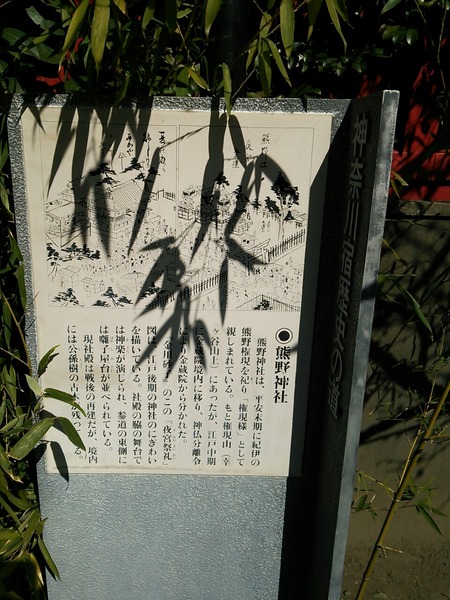 神奈川宿歴史の道
熊野
夜宮
◉熊野神社
熊野神社は、平安末期に紀伊の
熊野権現を祀り「権現様」として
親しまれている。もと権現山（幸
ヶ谷山上）にあったが、江戸中期
に金蔵院境内に移り、神仏分離令
により金蔵院から分かれた。
「金川砂子」のこの「夜宮祭礼」
図は、江戸後期の神社のにぎわい
を描いている。社殿の脇の舞台で
は神楽が演じられ、参道の東側に
は囃子屋台が並べられている。
現社殿は戦後の再建だが、境内
には公孫樹の古木が残っている。